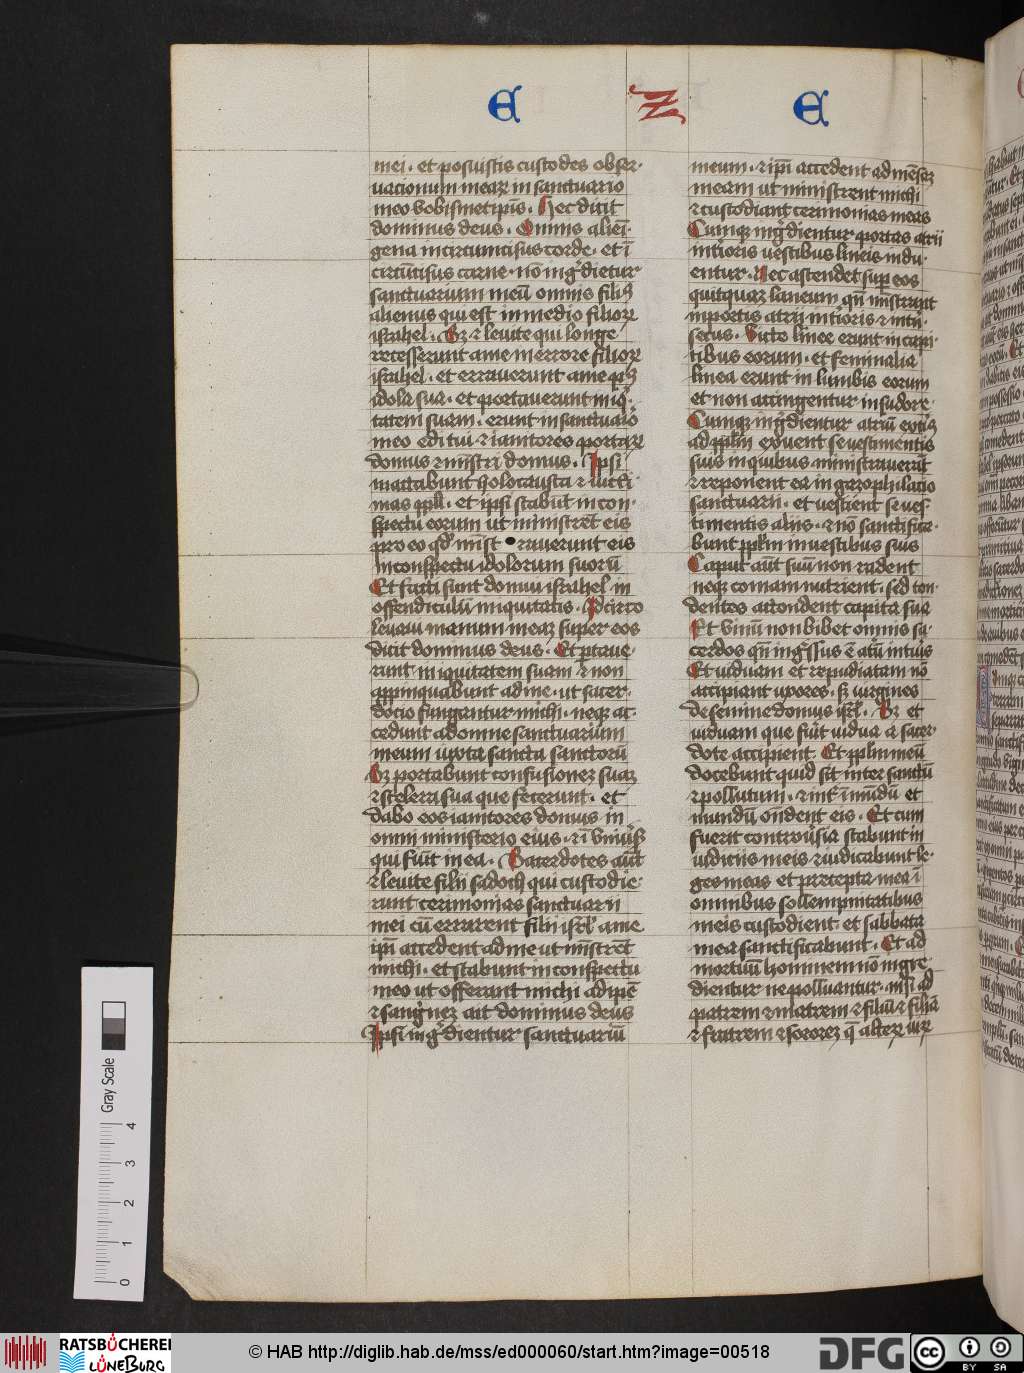 E Z E
mei · et posuistis custodes obser·
vacionum meaꝝ in sanctuario
meo vobismetipis̄ · Hec dicit
dominus deus · Omnis alieī·
gena incircumcisus corde · et ī
circūcisus carne · nō ingͬdietur
sanctuarium meū omnis filiꝰ
alienus qui est in medio filioꝝ
israhel · Sꝫ ⁊ levite qui longe
recesserunt a me in errore filioꝝ
israhel · et erraverunt a me pꝰ
idola sua · et portaverunt iniqͥ·
tatem suam · erunt in sanctuaͥo
meo editui · ⁊ ianitores portaꝝ
domus ⁊ mīstri domus · Ipsi
mactabunt holocausta ⁊ victi·
mas ppl̄i · et ipsi stabūt in con·
spectu eorum ut ministrēt eis
pro eo qd̓ mīst raverunt eis
in conspectu idolorum suorū
Et facti sunt domui israhel in
offendiculū iniquitatis · Idcirco
levavi manum meaꝫ super eos
dicit dominus deus · Et ꝑtave·
runt iniquitatem suam · ⁊ non
appinquabunt ad me · ut sacer·
docio fungantur michi · neqꝫ ac·
cedunt ad omne sanctuarium
meum iuxta sancta sanctorū
Sꝫ portabunt confusioneꝫ suaꝫ
⁊ scelera sua que fecerunt · et
dabo eos ianitores domus in
omni ministerio eius · ⁊ ī vniuͥsꝭ
qui fiūt in ea · Sacerdotes aūt
⁊ levite filii sadoch qui custodie·
runt cerimonias sanctuarii
mei cū errarent filii isrl̄ a me
ipī accedent ad me ut mīstrēt
michi · et stabunt in conspectu
meo ut offerant michi adipē
⁊ sangͥneꝫ ait dominus deus
Ipsi ingͬdientur sanctuariū
meum · ⁊ ipī accedent ad mēsaꝫ
meam ut ministrent michi
⁊ custodiant cerimonias meas
Cumqꝫ ingͬdientur portas atrii
intioris vestibus lineis indu·
entur · Nec ascendet suꝑ eos
quitquaꝫ laneum qn̄ mīstrant
in portis atrii intioris ⁊ intri·
secus · Vitte linee erunt in capi·
tibus eorum · et feminalia
linea erunt in lumbis eorum
et non accingentur in sudore·
Cumqꝫ ingͬdientur atriū extiꝰ
ad ppl̄m exuent se vestimentis
suis in quibus ministraverūt
⁊ reponent ea in gazophilatio
sanctuarii · et vestient se ves·
timentis aliis · ⁊ nō sanctifica·
bunt ppl̄m in vestibus suis
Caput aūt suū non radent
neqꝫ comam nutrient · sed ton·
dentes attondent capita sua
Et vinū non bibet omnis sa·
cerdos qn̄ ingͬssus ē atū intͥus
Et viduam et repudiatam nō
accipiant uxores · sꝫ virgines
de semine domus isrl̄ · Sꝫ et
viduam que fūit vidua a sacer·
dote accipient · Et ppl̄m meū
docebunt quid sit inter sanctū
⁊ pollutum · ⁊ int͛ īmūdū et
mundū on̄dent eis · Et cum
fuerit controūsia stabunt in
iudiciis meis ⁊ iudicabunt le·
ges meas et precepta mea ī
omnibus sollempnitatibus
meis custodient · et sabbata
mea sanctificabunt · Et ad
mortuū hominem nō ingre·
dientur ne polluantur · nisi ad
patrem ⁊ matrem ⁊ filiū ⁊ filiā
⁊ fratrem ⁊ sororeꝫ
Gray Scale
4
3
2
1
0
RATSBÜCHEREI
LÜNEBURG
© HAB http://diglib.hab.de/mss/ed000060/start.htm?image=00518
DFG
cc
BY SA